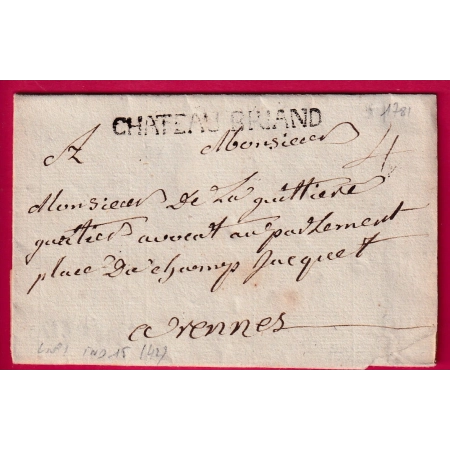 1781
CHATEAU BRIAND
A Monsieur
4
Monsieur De La guittiere
guertier avocat au parlement
place Du champ Jacquet
a rennes
IND 15